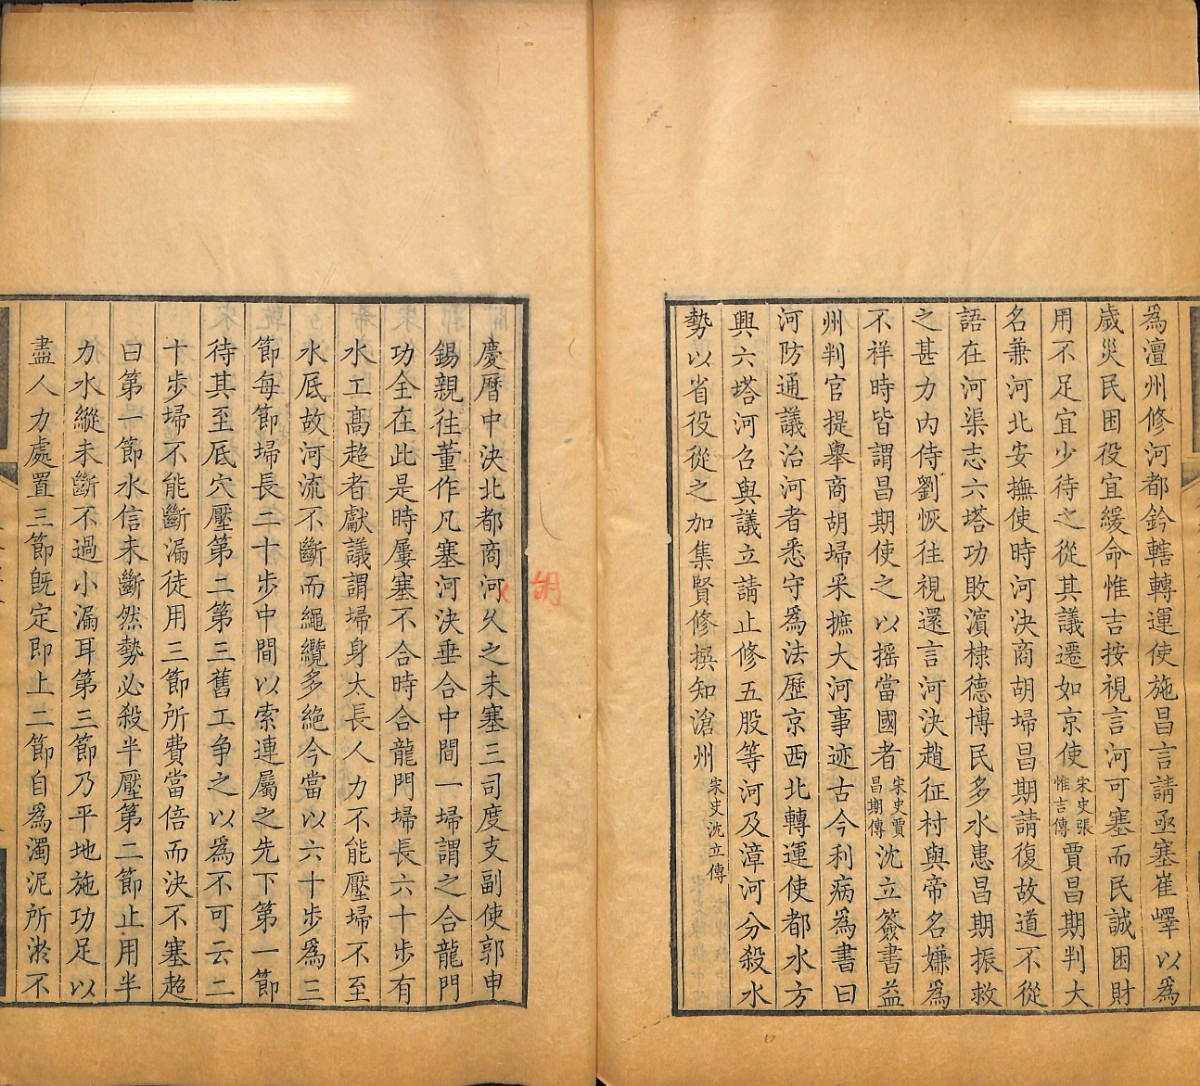 為澶州修河都鈐轄轉運使施昌言請亟塞崔嶧以為
歲災民困役宜緩命惟吉按視言河可塞而民誠困財
用不足宜少待之從其議遷如京使宋史張惟吉傳賈昌期判大
名兼河北安撫使時河決商胡埽昌期請復故道不從
語在河渠志六塔功敗濵棣德博民多水患昌期振救
之甚力內侍劉恢往視還言河決趙征村與帝名嫌為
不祥時皆謂昌期使之以搖當國者宋史賈昌期傳沈立簽書益
州判官提舉商胡埽采摭大河事迹古今利病為書曰
河防通議治河者悉守為法歷京西北轉運使都水方
興六塔河召與議立請止修五股等河及漳河分殺水
勢以省役從之加集賢修撰知滄州宋史沈立傳
慶曆中決北都商河久之未塞三司度支副使郭申
錫親往董作凡塞河決垂合中間一埽謂之合龍門
功全在此是時屢塞不合時合龍門埽長六十步有
水工高超者獻議謂埽身太長人力不能壓埽不至
水底故河流不斷而繩纜多絕今當以六十步為三
節每節埽長二十步中間以索連屬之先下第一節
待其至底穴壓第二第三舊工爭之以為不可云二
十步埽不能斷漏徒用三節所費當倍而決不塞超
曰第一節水信未斷然勢必殺半壓第二節止用半
力水縱未斷不過小漏耳第三節乃平地施功足以
盡人力處置三節既定即上二節自為濁泥所淤不
胡